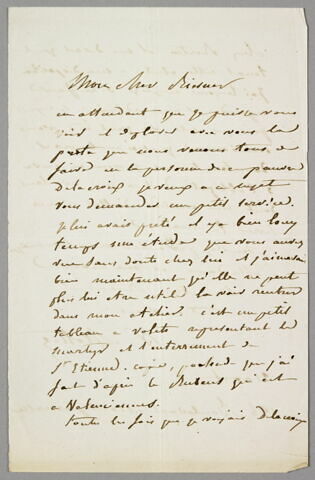 Mon cher Riesener
en attendant que je puisse vous
voir et déplorer avec vous la
perte que nous venons tous de
faire en la personne de ce pauvre
delacroix je veux a ce sujet
vous demander un petit service.
je lui avais prêté il y a bien long
temps une étude que vous aurez
vue sans doute chez lui et j'aimerais
bien maintenant qu'elle ne peut
plus lui être utile la voir rentrer
dans mon atelier. c'est un petit
tableau a volets representant le
martyr et l'enterrement de
St Etienne. copie, pochade que j'ai
fait d'après le Rubens qui est
a Valenciennes.
toute les fois que je voyais Delacroix